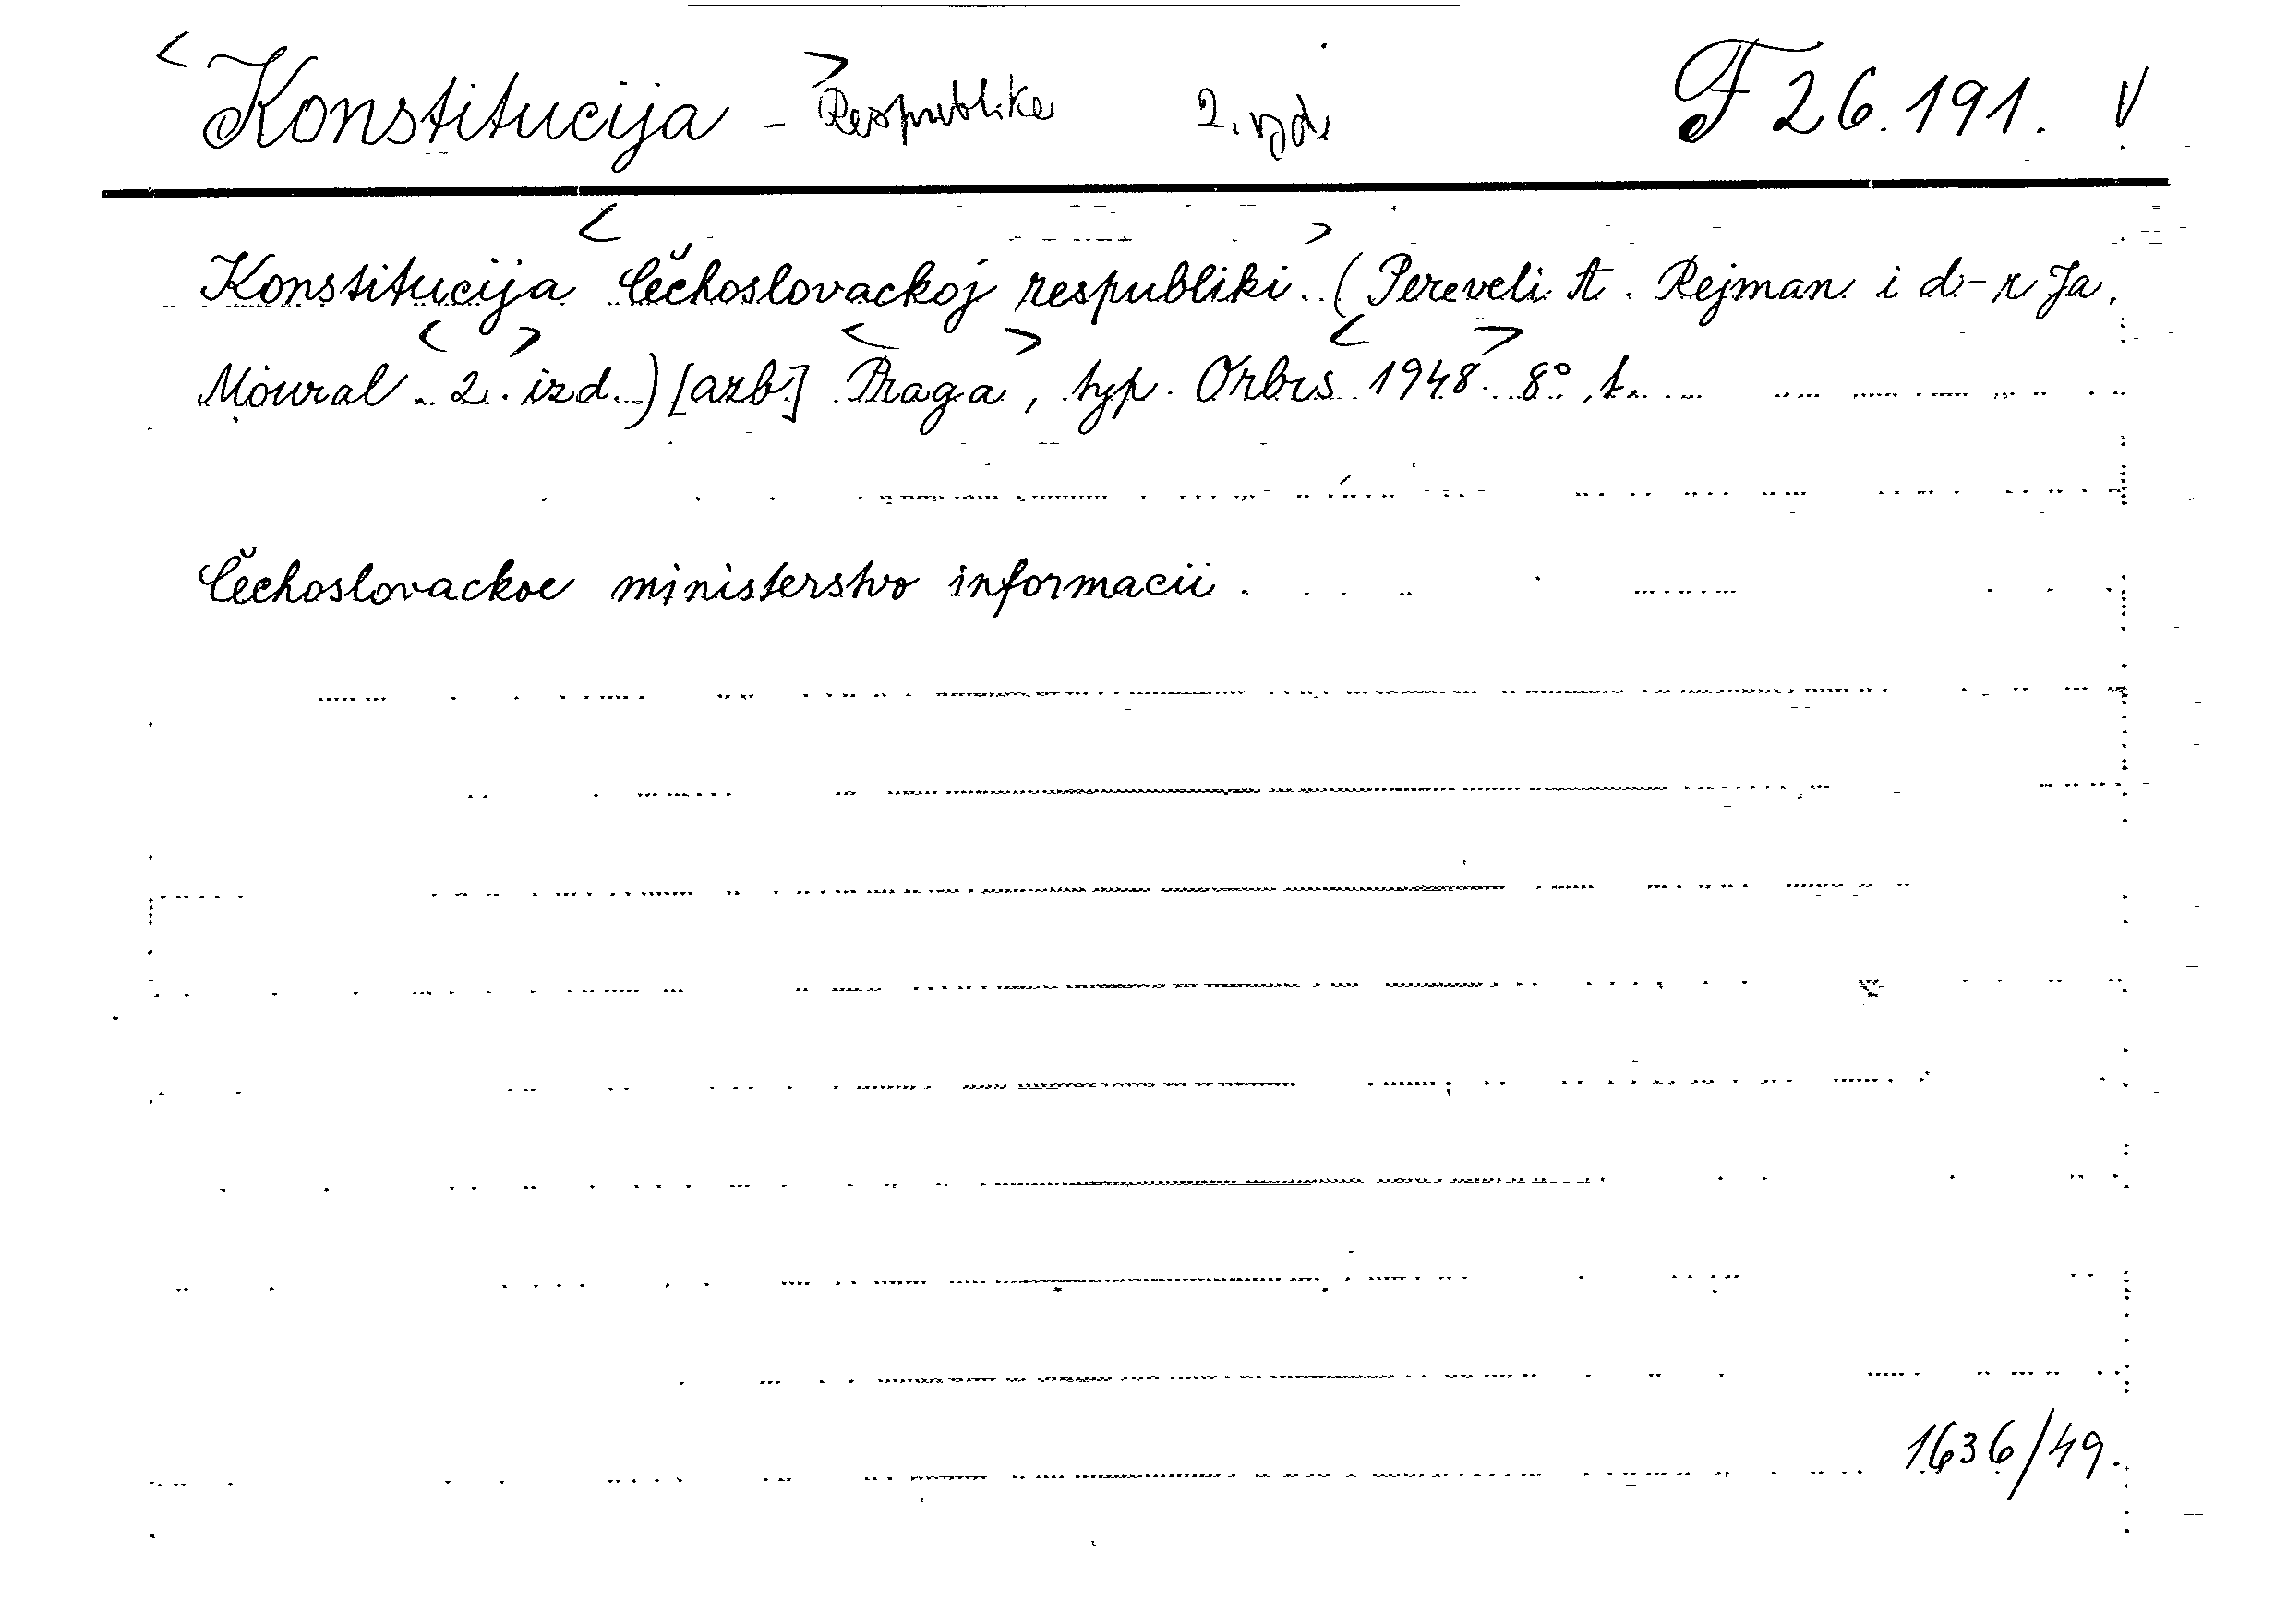 <Konstitucija> - Respublike 2. vyd. F 26.191. V
Konstitucija <Čechoslovackoj respubliki>. (Pereveli A. Rejman i d-r Ja.
Moural. <2.> izd.) [azb.] <Praga>, typ. Orbis <1948>. 8°, 1.
Čechoslovackoe ministerstvo informacii.
1636/49.